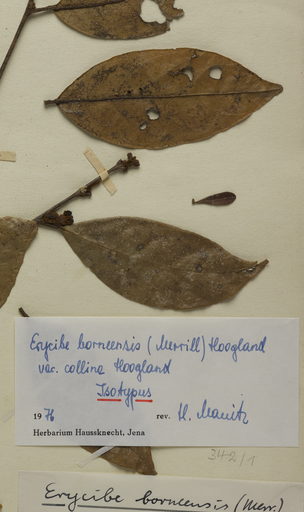 Erycibe borneensis (Merrill) Hoogland
var. collina Hoogland
Isotypus
1976 rev. H. Manitz
Herbarium Haussknecht, Jena
342/1
Erycibe borneensis (Merr.)